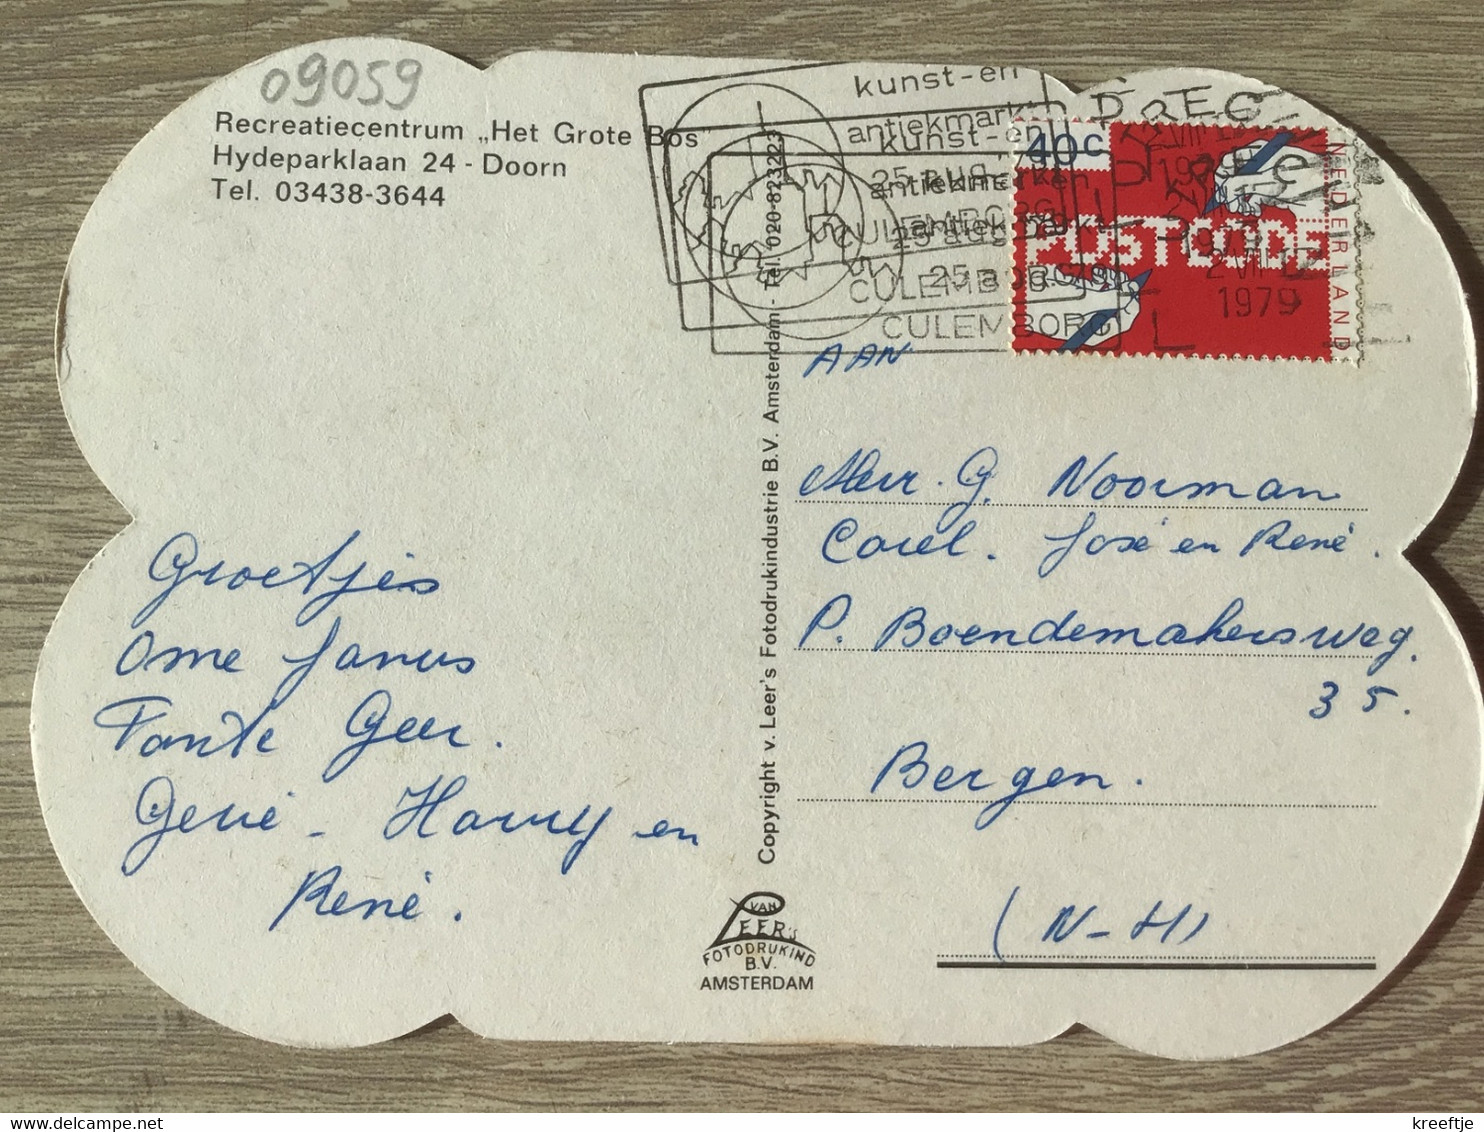 09059
Recreatiecentrum „Het Grote Bos"
Hydeparklaan 24 - Doorn
Tel. 03438-3644
kunst-en
antiekmarkt
kunst-en
25 aug.
CULEMBORG
CULEMBORG
CULEMBORG
40c
POSTCODE
NEDERLAND
2 VII
1979
Groetjes
Ome Janus
Tante Geer.
Gerrie - Harry en
René.
Copyright v. Leer's Fotodrukindustrie B.V. Amsterdam - Tel. 020-823223
VAN
LEER's
FOTODRUKIND
B.V.
AMSTERDAM
AAN
Mevr. G. Noorman
Carel. José en René.
P. Boendemakersweg.
35.
Bergen.
(N-H)
kreeftje